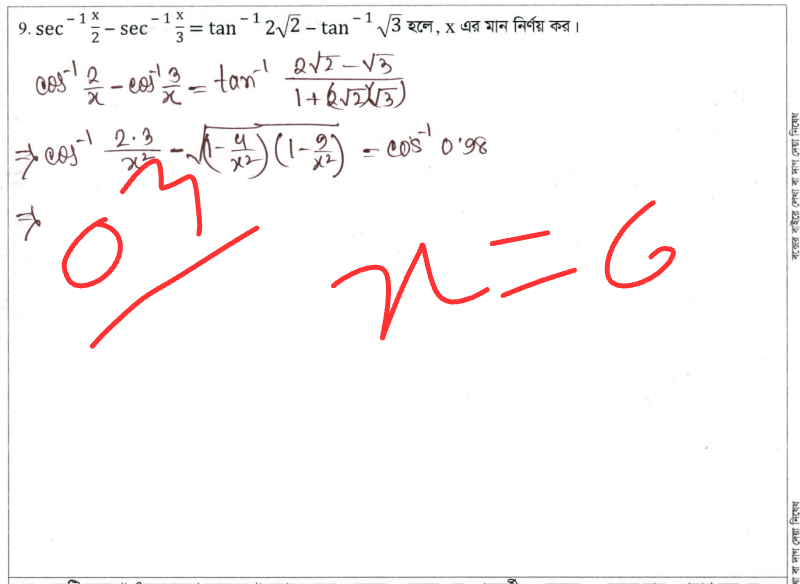 9. sec⁻¹ x/2 − sec⁻¹ x/3 = tan⁻¹ 2√2 − tan⁻¹ √3 হলে, x এর মান নির্ণয় কর।
cos⁻¹ 2/x − cos⁻¹ 3/x = tan⁻¹ (2√2 − √3)/(1 + (2√2)(√3))
⇒ cos⁻¹ 2·3/x² − √((1 − 4/x²)(1 − 9/x²)) = cos⁻¹ 0.98
⇒
0
x = 6
বক্সের বাইরে লেখা বা দাগ দেয়া নিষেধ
বা দাগ দেয়া নিষেধ